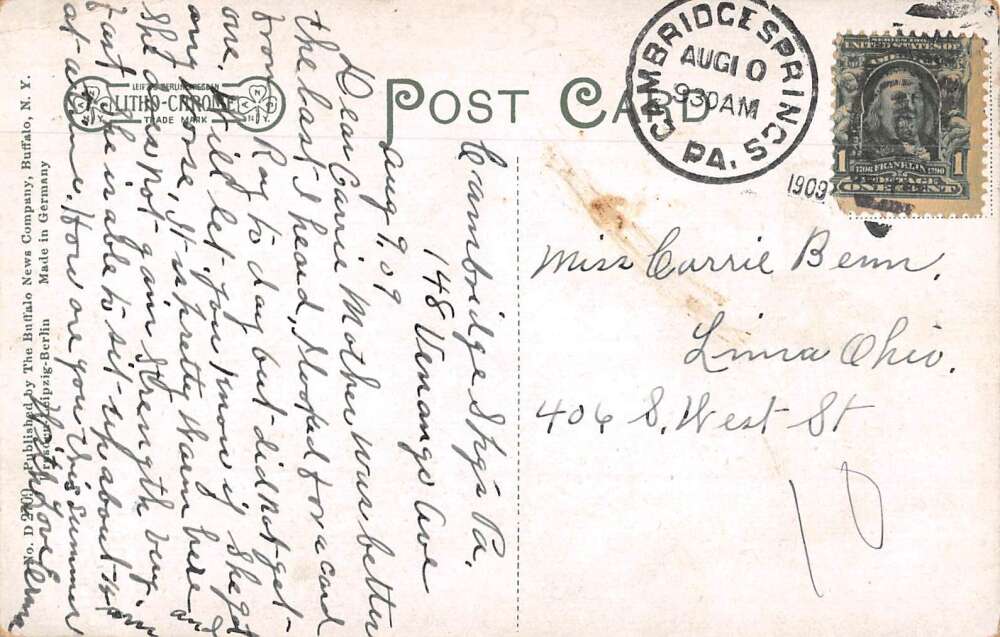 POST CARD
LEIPZIG BERLIN DRESDEN
LITHO-CHROME
TRADE MARK
N.Y.
N.Y.
No. D 2900 Published by The Buffalo News Company, Buffalo, N. Y.
Dresden-Leipzig-Berlin Made in Germany
CAMBRIDGE SPRINGS PA.
AUG 10
930AM
1909
SERIES OF 1902
UNITED STATES OF
AMERICA
1706 FRANKLIN 1790
POSTAGE
1 ONE CENT 1
Cambridge Spgs Pa.
148 Venango Ave
Aug 9, 09
Dear Carrie Mother was better
the last I heard, I looked for a card
from Ray to day but did not get
one, Will let you know if she got
any worse, It is pretty warm here and
she does not gain strength very
fast, She is able to sit up about 2 min
at a time, How are you this summer
With love Erma
Miss Carrie Benn,
Lima Ohio.
406 S. West St
10